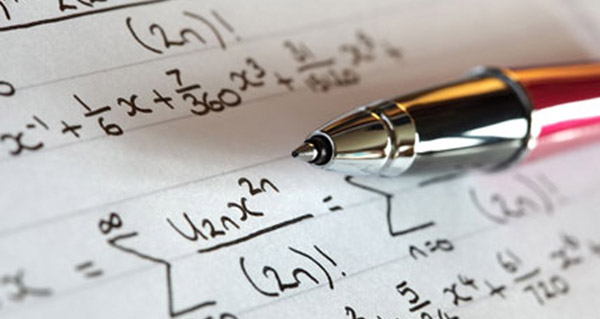 (2n)!
x⁻¹ + 1/6 x + 7/360 x³ + 31/15120 x⁵ +
x = ∞ ∑ U₂ₙx²ⁿ / (2n)! = ∑ n=0 (2n)!
5/24 x⁴ + 61/720 x⁶ +